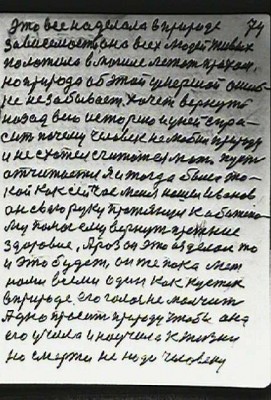 Это все наделала в природе 74
зависемость она всех людей живых
положила в могиле лежат прахом,
но природа об этой умершой ошиб-
ке не забывает. Хочет вернуть
назад всю историю и у неё спро-
сит почему человек не любил природу
и не хотел считаться мать пусть
отчитается Я и тогда было та-
кой как сейчас меня нашел Иванов
он свою руку протянул к больно-
му помог ему вернут прежние
здоровие, Я раз он это зделал то
и это будет, он же пока между
нами всеми один как кустик
в природе, его голос не молчит
Я одно просит природу чтобы она
его учила и научела к жизни
но смерти не надо человеку